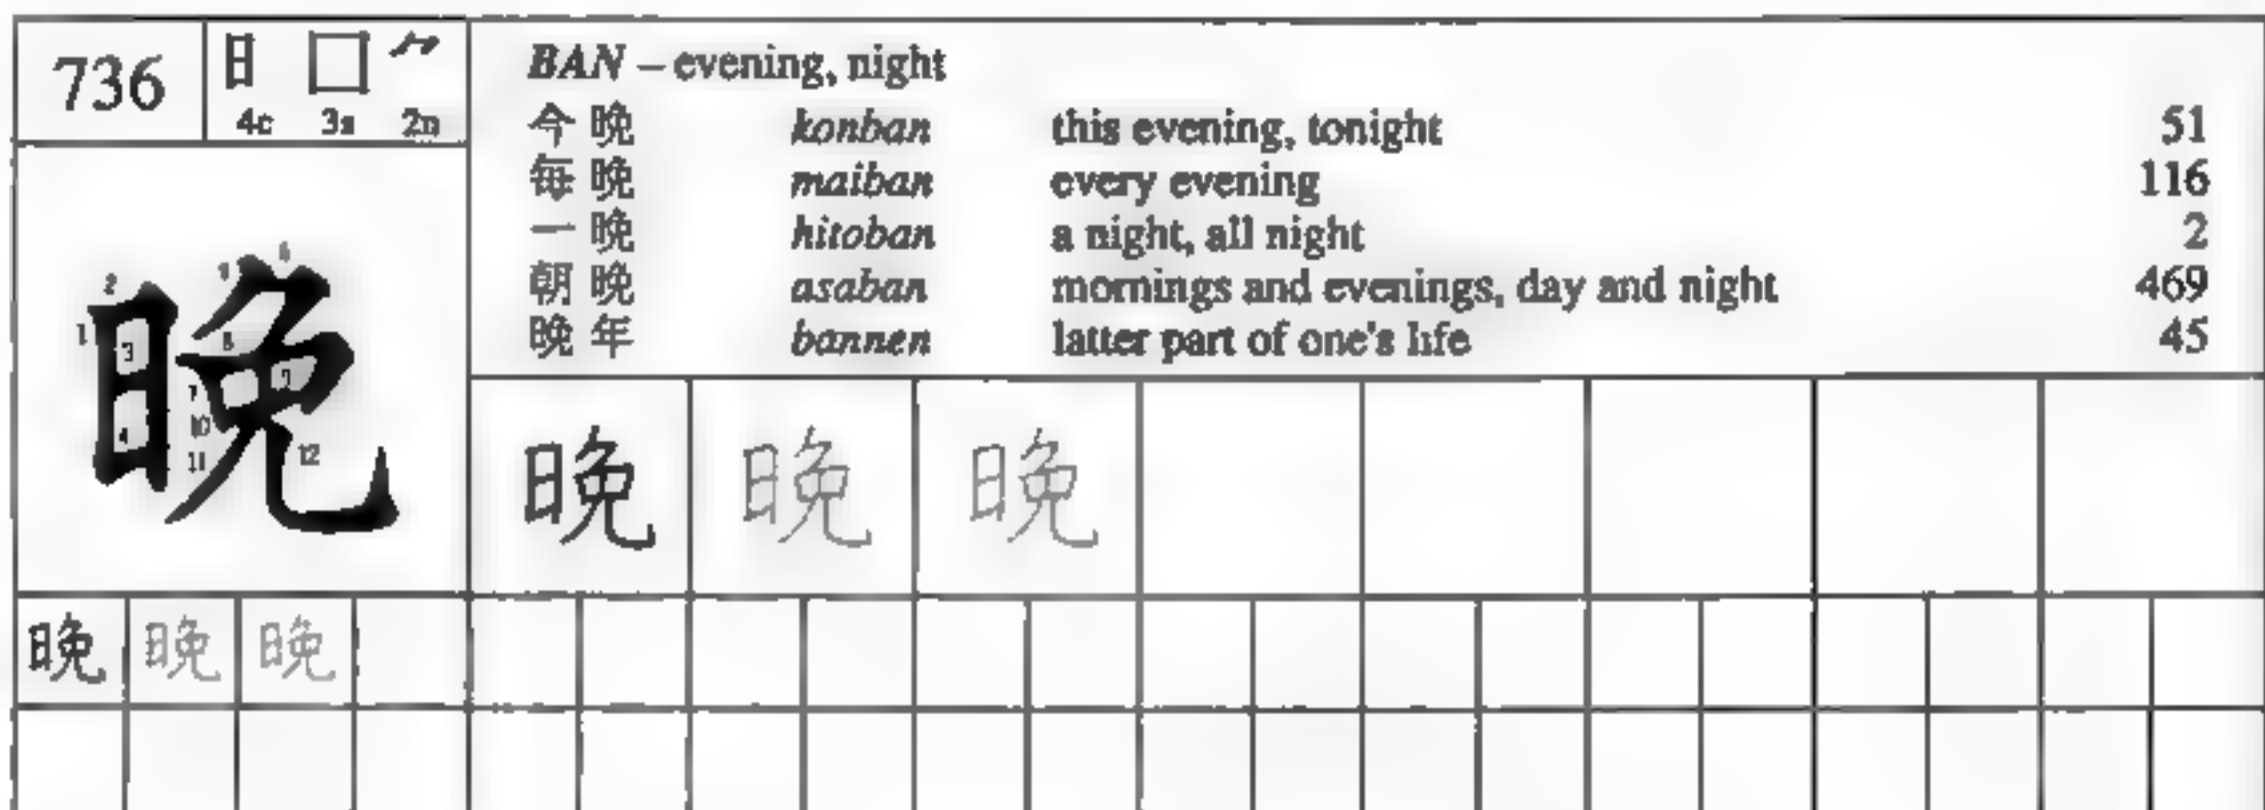 736
日 囗 𠂊
4c 3s 2n
BAN – evening, night
今晩 konban this evening, tonight 51
毎晩 maiban every evening 116
一晩 hitoban a night, all night 2
朝晩 asaban mornings and evenings, day and night 469
晩年 bannen latter part of one's life 45
晩
1 2 3 4 5 6 7 8 9 10 11 12
晩 晩 晩
晩 晩 晩